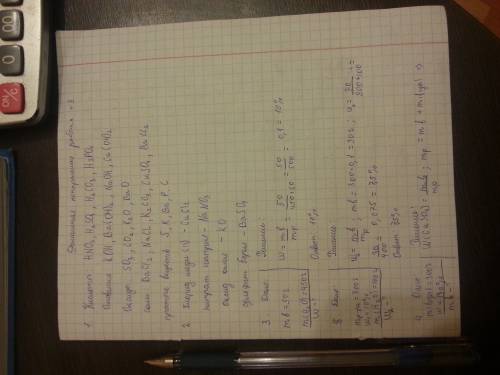 Домашняя контрольная работа № 3
1 Кислоты HNO₃, H₂SO₄, H₂CO₃, H₃PO₄
Основания KOH, Ba(OH)₂, NaOH, Ca(OH)₂
Оксиды SO₂, CO₂, K₂O, BaO
Соли BaCl₂, NaCl, K₂CO₃, CuSO₄, BaCl₂
простые вещества S, K, Ba, P, C
2. Хлорид меди (II) - CuCl₂
нитрат натрия - NaNO₃
оксид калия - K₂O
сульфат бария - BaSO₄
3 Дано:
mв = 50 г
m(H₂O) = 450 г
W - ?
Решение:
W = mв / mр = 50 / 450+50 = 50 / 500 = 0,1 = 10%
Ответ: 10%
Дано
Решение
W₁ = mв / mр; mв = 300·0,1 = 30 г; W₂ = 30 / 300+100 =
30 / 400 = 0,075 = 7,5%
Ответ: 7,5%
4 Дано
Решение
W(CuSO₄) = mв / mр; mр = mв + m(
mв - ?